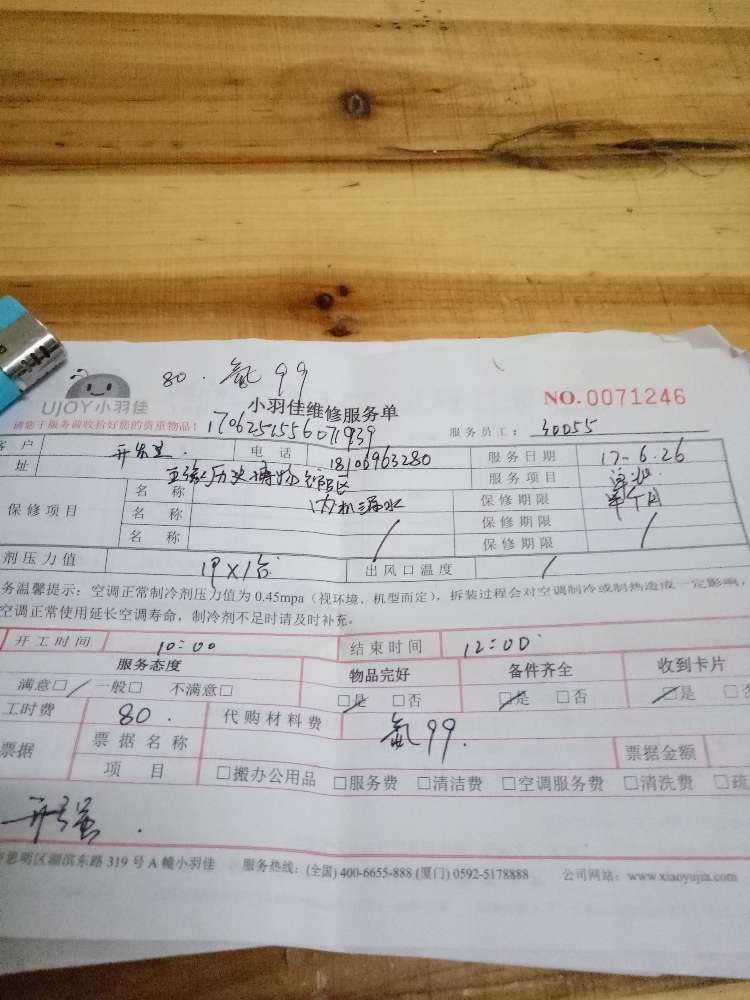 80. 氟 99
UJOY小羽佳 小羽佳维修服务单 NO.0071246
请您于服务前收拾好您的贵重物品! 1706251556071939 服务员工: 30055
客 户 电 话 18106963280 服务日期 17-6.26
址 历史博物 服务项目
保修项目 名 称 内机漏水 保修期限 单个月
名 称 保修期限
名 称 保修期限
剂压力值 1P×1台 出风口温度
务温馨提示: 空调正常制冷剂压力值为 0.45mpa (视环境、机型而定), 拆装过程会对空调制冷或制热造成一定影响,
空调正常使用延长空调寿命, 制冷剂不足时请及时补充。
开工时间 10:00 结束时间 12:00
服务态度 物品完好 备件齐全 收到卡片
满意□ 一般□ 不满意□ □是 □否 □是 □否 □是 □否
工时费 80. 代购材料费 氟99.
票据 票据名称 票据金额
项 目 □搬办公用品 □服务费 □清洁费 □空调服务费 □清洗费 □疏
思明区湖滨东路 319 号 A 幢小羽佳 服务热线: (全国) 400-6655-888 (厦门) 0592-5178888 公司网站: www.xiaoyujia.com